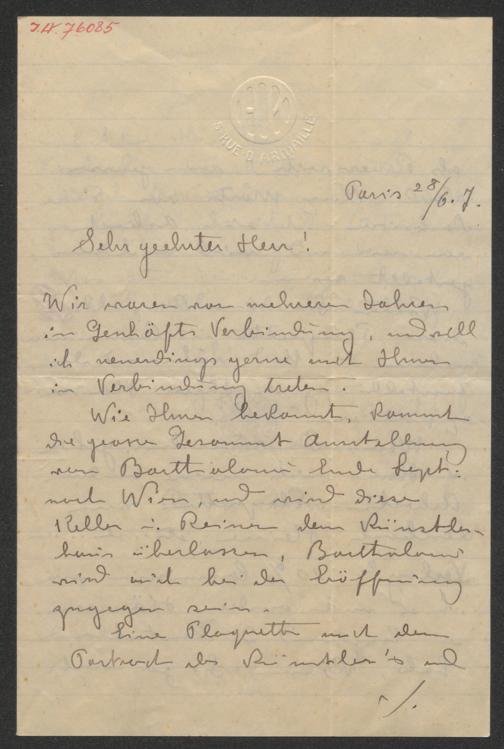 J.N. 76085
5 RUE D'ARMAILLÉ
Paris 28/6. 7.
Sehr geehrter Herr!
Wir waren vor mehreren Jahren
in Geschäfts Verbindung, und will
ich neuerdings gerne mit Ihnen
in Verbindung treten.
Wie Ihnen bekannt, kommt
die grosse Gesammt Ausstellung
von Bartholomé Ende Sept:
nach Wien, und wird diese
Keller u. Reiner dem Künstler-
haus überlassen, Bartholomé
wird auch bei der Eröffnung
zugegen sein.
Eine Plaquette mit dem
Portrait des Künstler's und
./.